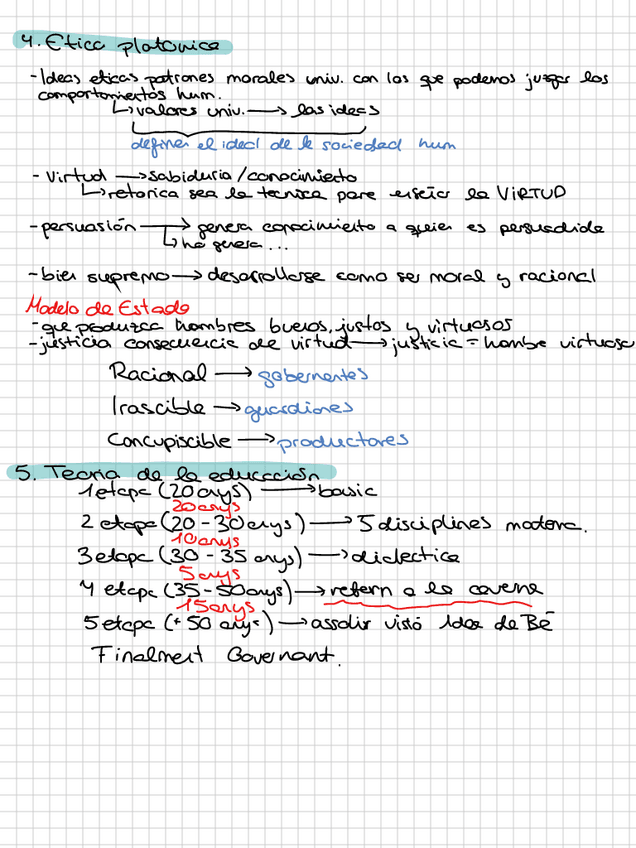 4. Etica platonica
-Ideas eticas patrones morales univ. con los que podemos juzgar los
comportamientos hum.
↳ valores univ. → las ideas
definen el ideal de la sociedad hum
- Virtud → sabiduria/conocimiento
↳ retorica sea la tecnica para enseñar la VIRTUD
-persuasión → genera conocimiento a quien es persuadido
↳ no genera...
-bien supremo → desarrollarse como ser moral y racional
Modelo de Estado
-que produzca hombres buenos, justos y virtuosos
-justicia consecuencia de virtud → justicia = hombre virtuoso
Racional → gobernantes
Irascible → guardianes
Concupiscible → productores
5. Teoria de la educacción
1 etapa (20 anys) → basic
20 anys
2 etapa (20 - 30 anys) → 5 disciplines
10 anys
3 etapa (30 - 35 anys) → dialectica
5 anys
4 etapa (35 - 50 anys) → retorn a la caverna
15 anys
5 etapa (+ 50 anys) → assolir visió Idea de Bé
Finalment Governant.